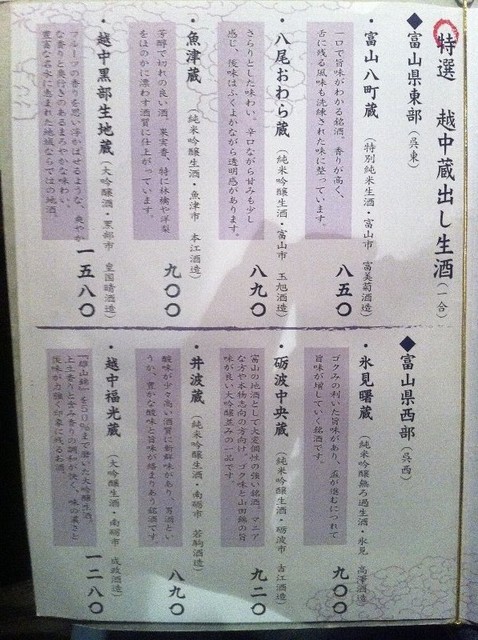 特選　越中蔵出し生酒（一合）
◆富山県東部（呉東）
・富山 八町蔵（特別純米生酒・富山市　富美菊酒造）
一口で旨味がわかる銘酒。香りが高く、
舌に残る風味も洗練された味に整っています。
八五〇
・八尾おわら蔵（純米吟醸生酒・富山市　玉旭酒造）
さらりとした味わい。辛口ながら甘みも少し
感じ、後味はふくよかながら透明感があります。
八九〇
・魚津蔵（純米吟醸生酒・魚津市　本江酒造）
芳醇で切れの良い酒。果実香、特に林檎や洋梨
をほのかに漂わす酒質に仕上がっています。
九〇〇
・越中黒部生地蔵（大吟醸酒・黒部市　皇国晴酒造）
フルーツの香りを思い浮かばせるような、爽やか
な香りと奥行きのあるまろやかな味わい。
豊富な名水に恵まれた地域ならではの地酒。
一五八〇
◆富山県西部（呉西）
・氷見曙蔵（純米吟醸無ろ過生酒・氷見　高澤酒造）
ゴクみの利いた旨味があり、盃が進むにつれて
旨味が増していく銘酒です。
九〇〇
・砺波中央蔵（純米吟醸生酒・砺波市　吉江酒造）
富山の地酒として大変個性の強い銘酒。マニア
な方や本物志向の方向け。ゴク味と山田錦の旨
味が良い大吟醸並みの一品です。
九二〇
・井波蔵（純米吟醸生酒・南砺市　若駒酒造）
酸味が少々高い酒質に新鮮味があり、男酒とい
うか、豊かな酸味と旨味が絡まりあう銘酒です。
八九〇
・越中福光蔵（大吟醸生酒・南砺市　成政酒造）
『雄山錦』を50％まで磨いた大吟醸生酒。
上立香りと含み香りの調和が快く、味の濃さと
後味が力強く印象に残るお酒。
一二八〇